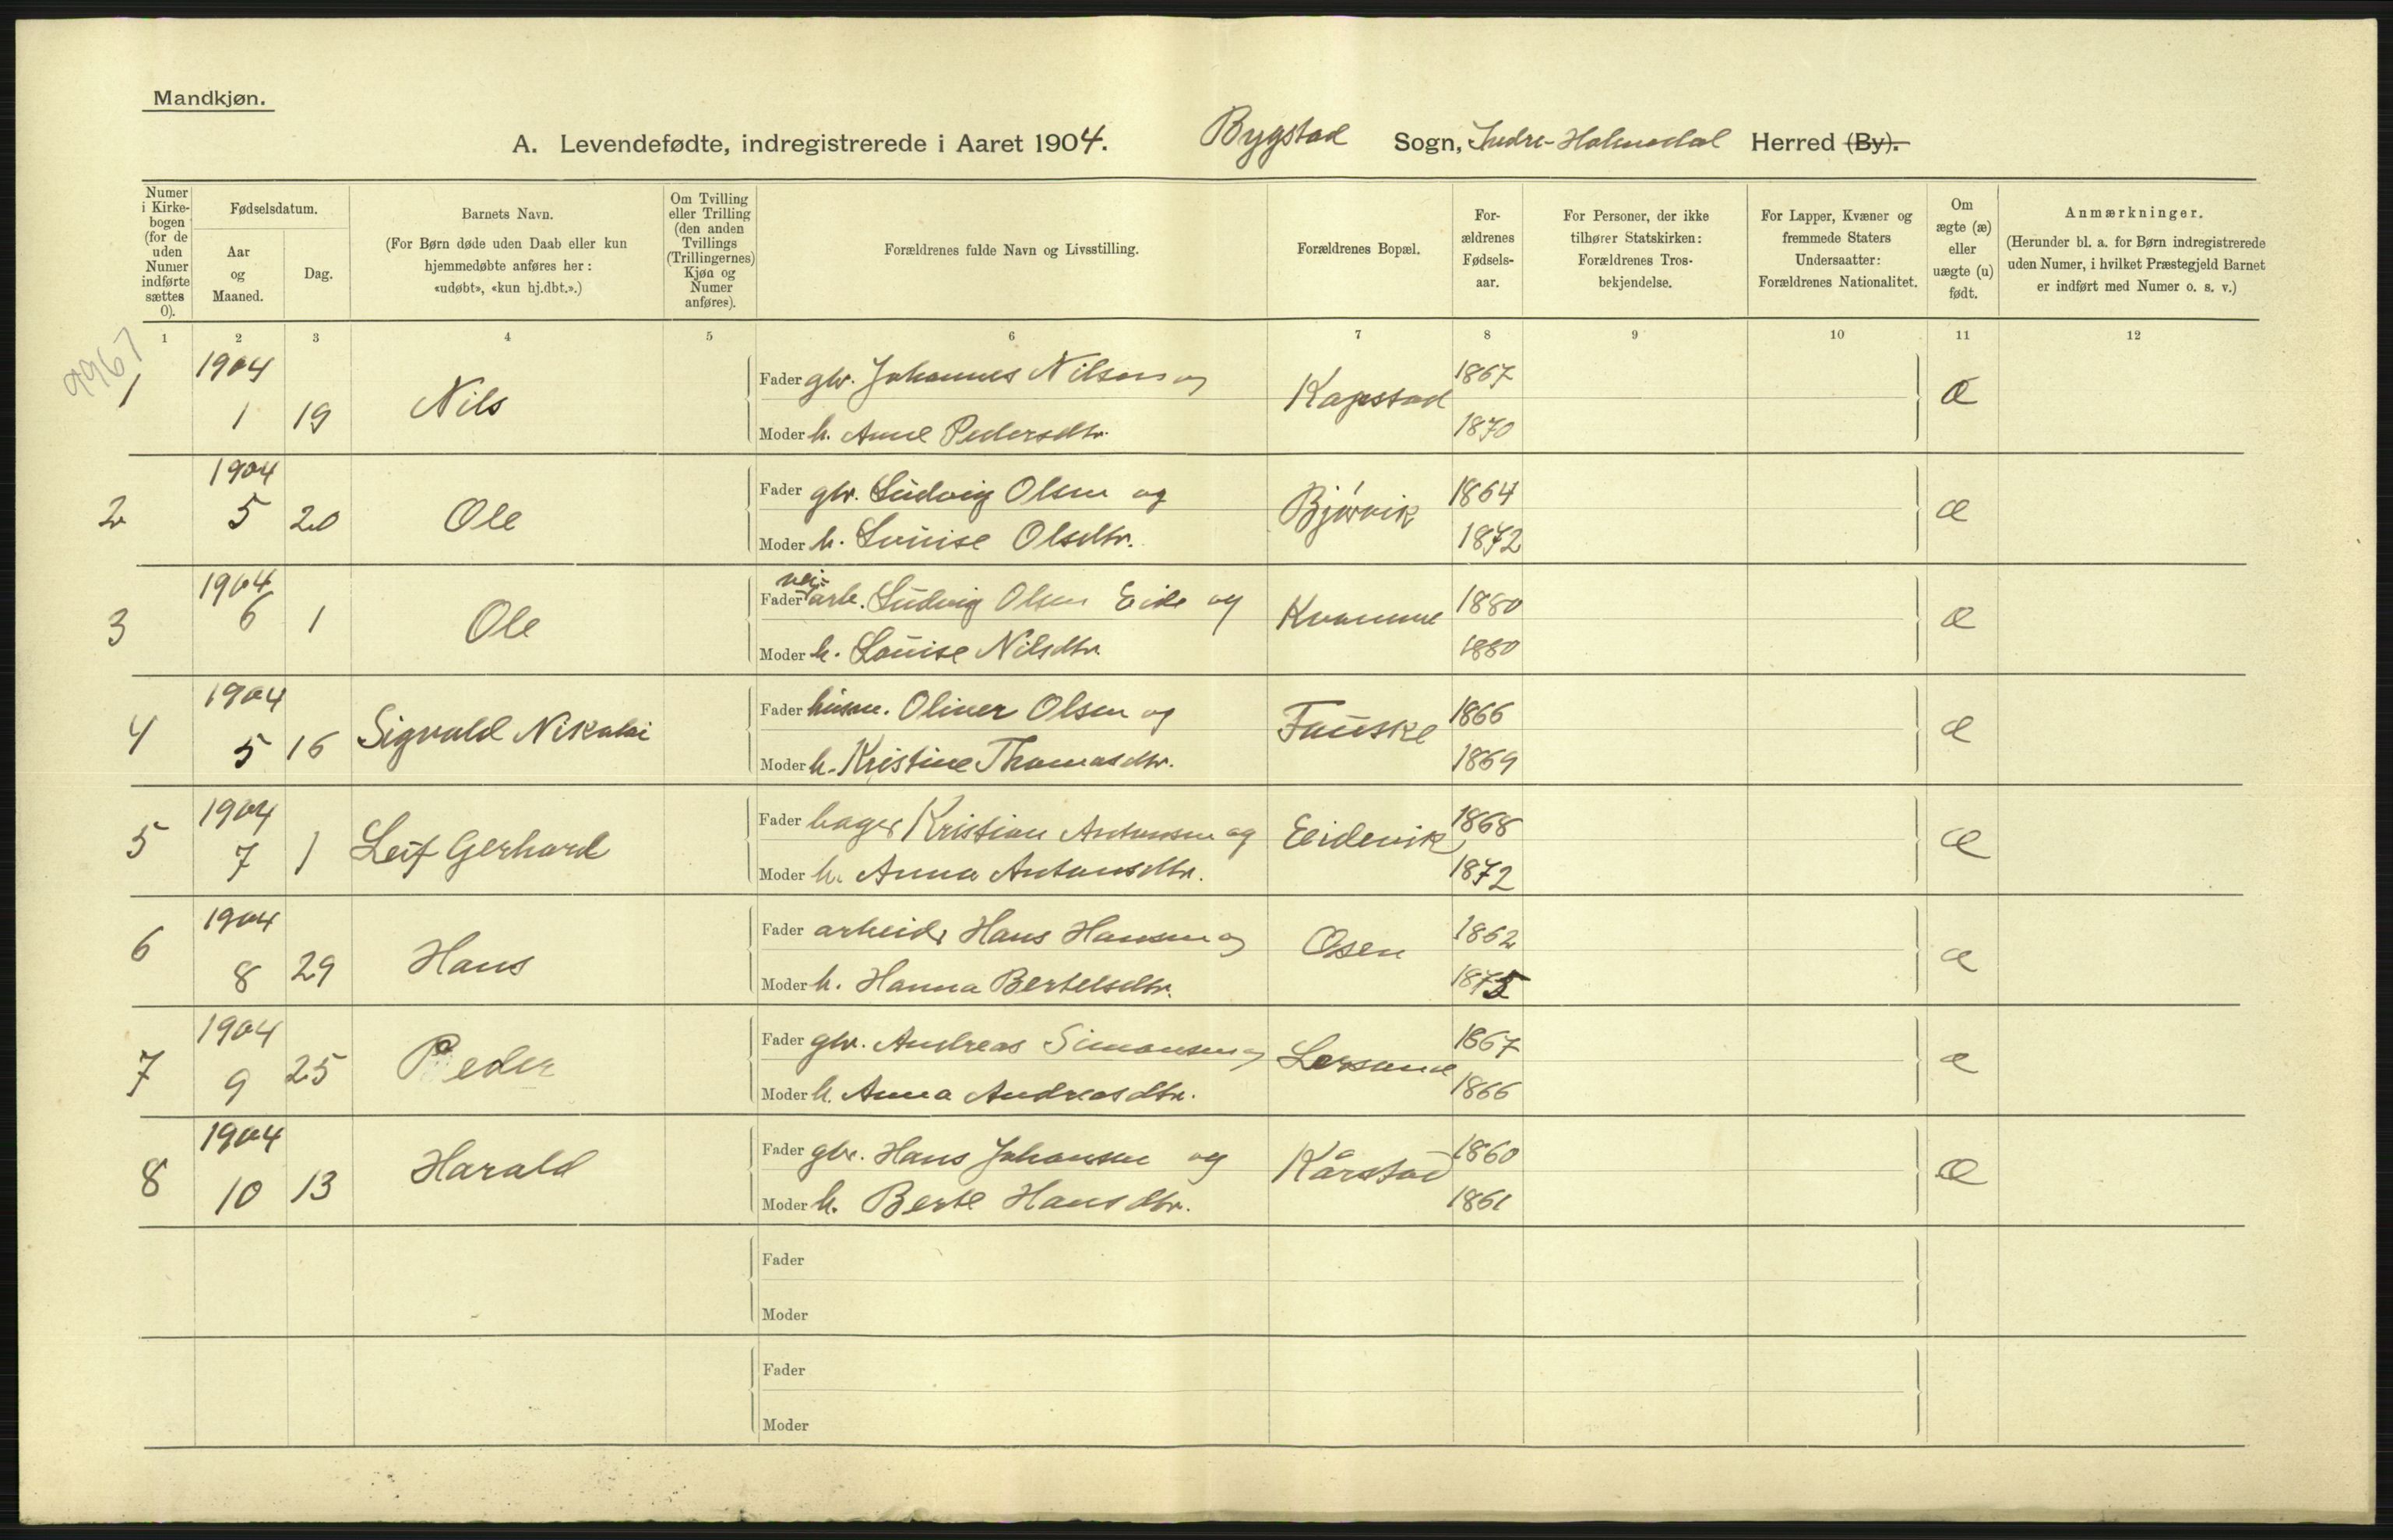 Mandkjøn.
A. Levendefødte, indregistrerede i Aaret 1904. Bygstad Sogn, Indre-Holmedal Herred (By).
Numer i Kirkebogen (for de uden Numer indførte sættes 0).
Fødselsdatum.
Aar og Maaned.
Dag.
Barnets Navn.
(For Børn døde uden Daab eller kun
hjemmedøbte anføres her:
«udøbt», «kun hj.dbt.».)
Om Tvilling
eller Trilling
(den anden
Tvillings
(Trillingernes)
Kjøn og
Numer
anføres).
Forældrenes fulde Navn og Livsstilling.
Forældrenes Bopæl.
For-
ældrenes
Fødsels-
aar.
For Personer, der ikke
tilhører Statskirken:
Forældrenes Tros-
bekjendelse.
For Lapper, Kvæner og
fremmede Staters
Undersaatter:
Forældrenes Nationalitet.
Om
ægte (æ)
eller
uægte (u)
født.
Anmærkninger.
(Herunder bl. a. for Børn indregistrerede
uden Numer, i hvilket Præstegjeld Barnet
er indført med Numer o. s. v.)
1 2 3 4 5 6 7 8 9 10 11 12
9967
1 1904 1 19 Nils Fader gbr. Johannes Nilsen og Kapstad 1867 æ
Moder h. Anne Pedersdtr. 1870
2 1904 5 20 Ole Fader gbr. Ludvig Olsen og Bjørvik 1864 æ
Moder h. Louise Olsdtr. 1872
3 1904 6 1 Ole Fader vei-arb. Ludvig Olsen Eide og Kvamme 1880 æ
Moder h. Louise Nilsdtr. 1880
4 1904 5 16 Sigvald Nikolai Fader husm. Oliver Olsen og Fauske 1866 æ
Moder h. Kristine Thomasdtr. 1869
5 1904 7 1 Leif Gerhard Fader bager Kristian Antonsen og Eidevik 1868 æ
Moder h. Anna Antonsdtr. 1872
6 1904 8 29 Hans Fader arbeider Hans Hansen og Osen 1862 æ
Moder h. Hanna Bertelsdtr. 1875
7 1904 9 25 Peder Fader gbr. Andreas Simonsen og 1867 æ
Moder h. Anna Andreasdtr. 1866
8 1904 10 13 Harald Fader gbr. Hans Johansen og Kårstad 1860 æ
Moder h. Berte Hansdtr. 1861
Fader
Moder
Fader
Moder